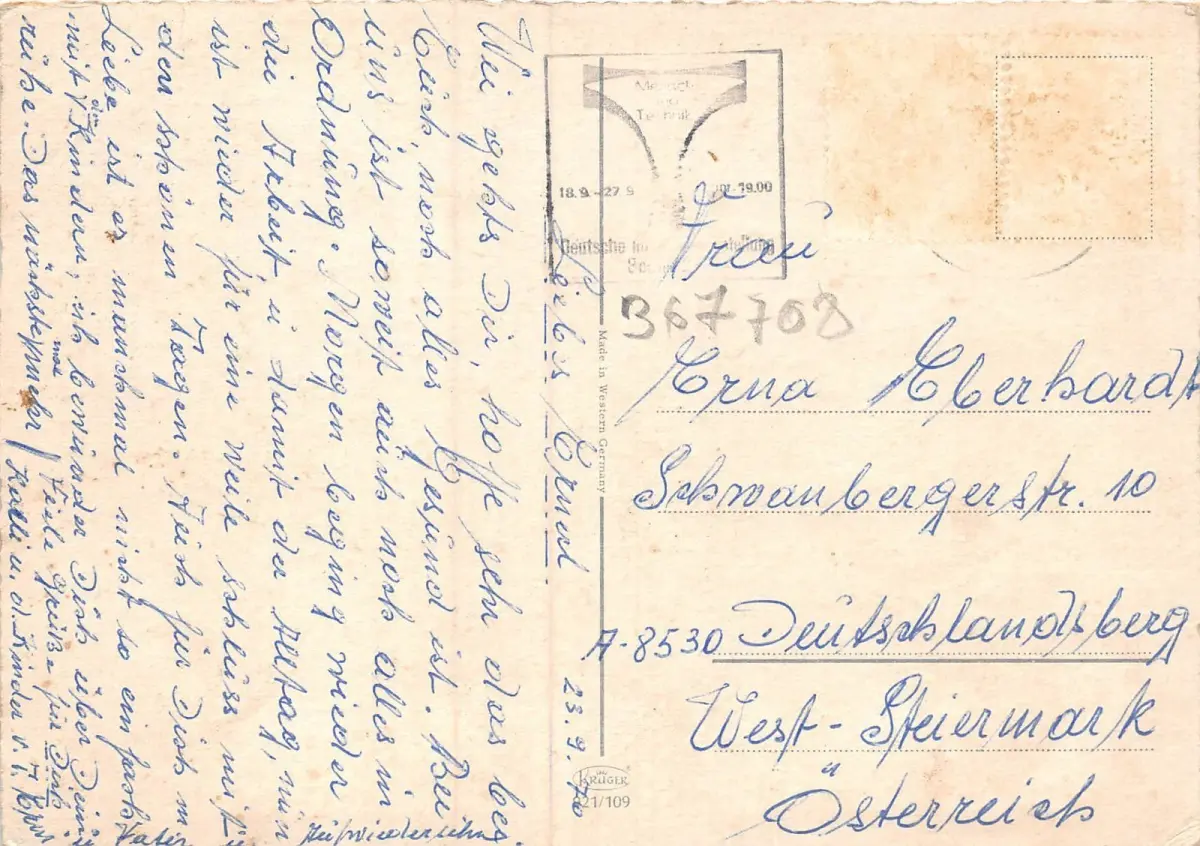 Liebes Erna! 23. 9. 70
Wie gehts Dir, hoffe sehr das bei
Euch noch alles Gesund ist. Bei
Uns ist soweit auch noch alles in
Ordnung. Morgen beging wieder
die Arbeit, u damit der Alltag, nun
ist wieder für eine Weile schluss mit
den schönen Tagen. Auch für Dich m
Liebe ist es manchmal nicht so einfach
mit den Kindern, ich bewunder Dich über Dein
rühe. Das nächste mal mehr / Viele Grüße für Dich
Vater
Aufwiedersehn
Mensch
und
Technik
18.9.-27.9
19.00
Deutsche
Frau
367708
Erna Eberhardt
Schwanbergerstr. 10
A-8530 Deutschlandsberg
West-Steiermark
Österreich
Made in Western Germany
KRÜGER
921/109